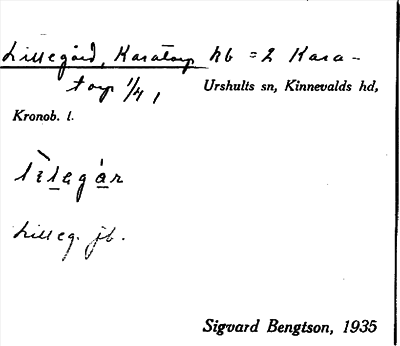 Lillegård, Karatorp hb = 2 Kara-
torp 1/4,
Urshults sn, Kinnevalds hd,
Kronob. l.
Lilleg. jb.
Sigvard Bengtson, 1935